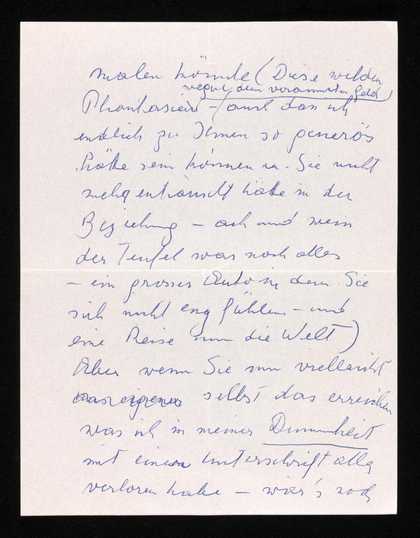 malen könnte (Diese wilden
wegen dem verdammten Geld)
Phantasien – (auch dass ich
endlich zu Ihnen so generös
hätte sein können u. Sie nicht
mehr enttäuscht hätte in der
Beziehung – ach und wenn
der Teufel was noch alles
– ein grosses Auto in dem Sie
sich nicht eng fühlen – und
eine Reise um die Welt)
Aber wenn Sie nun vielleicht
selbst das erreichen
was ich in meiner Dummheit
mit einem Unterschrift alle
verloren habe – wär's noch